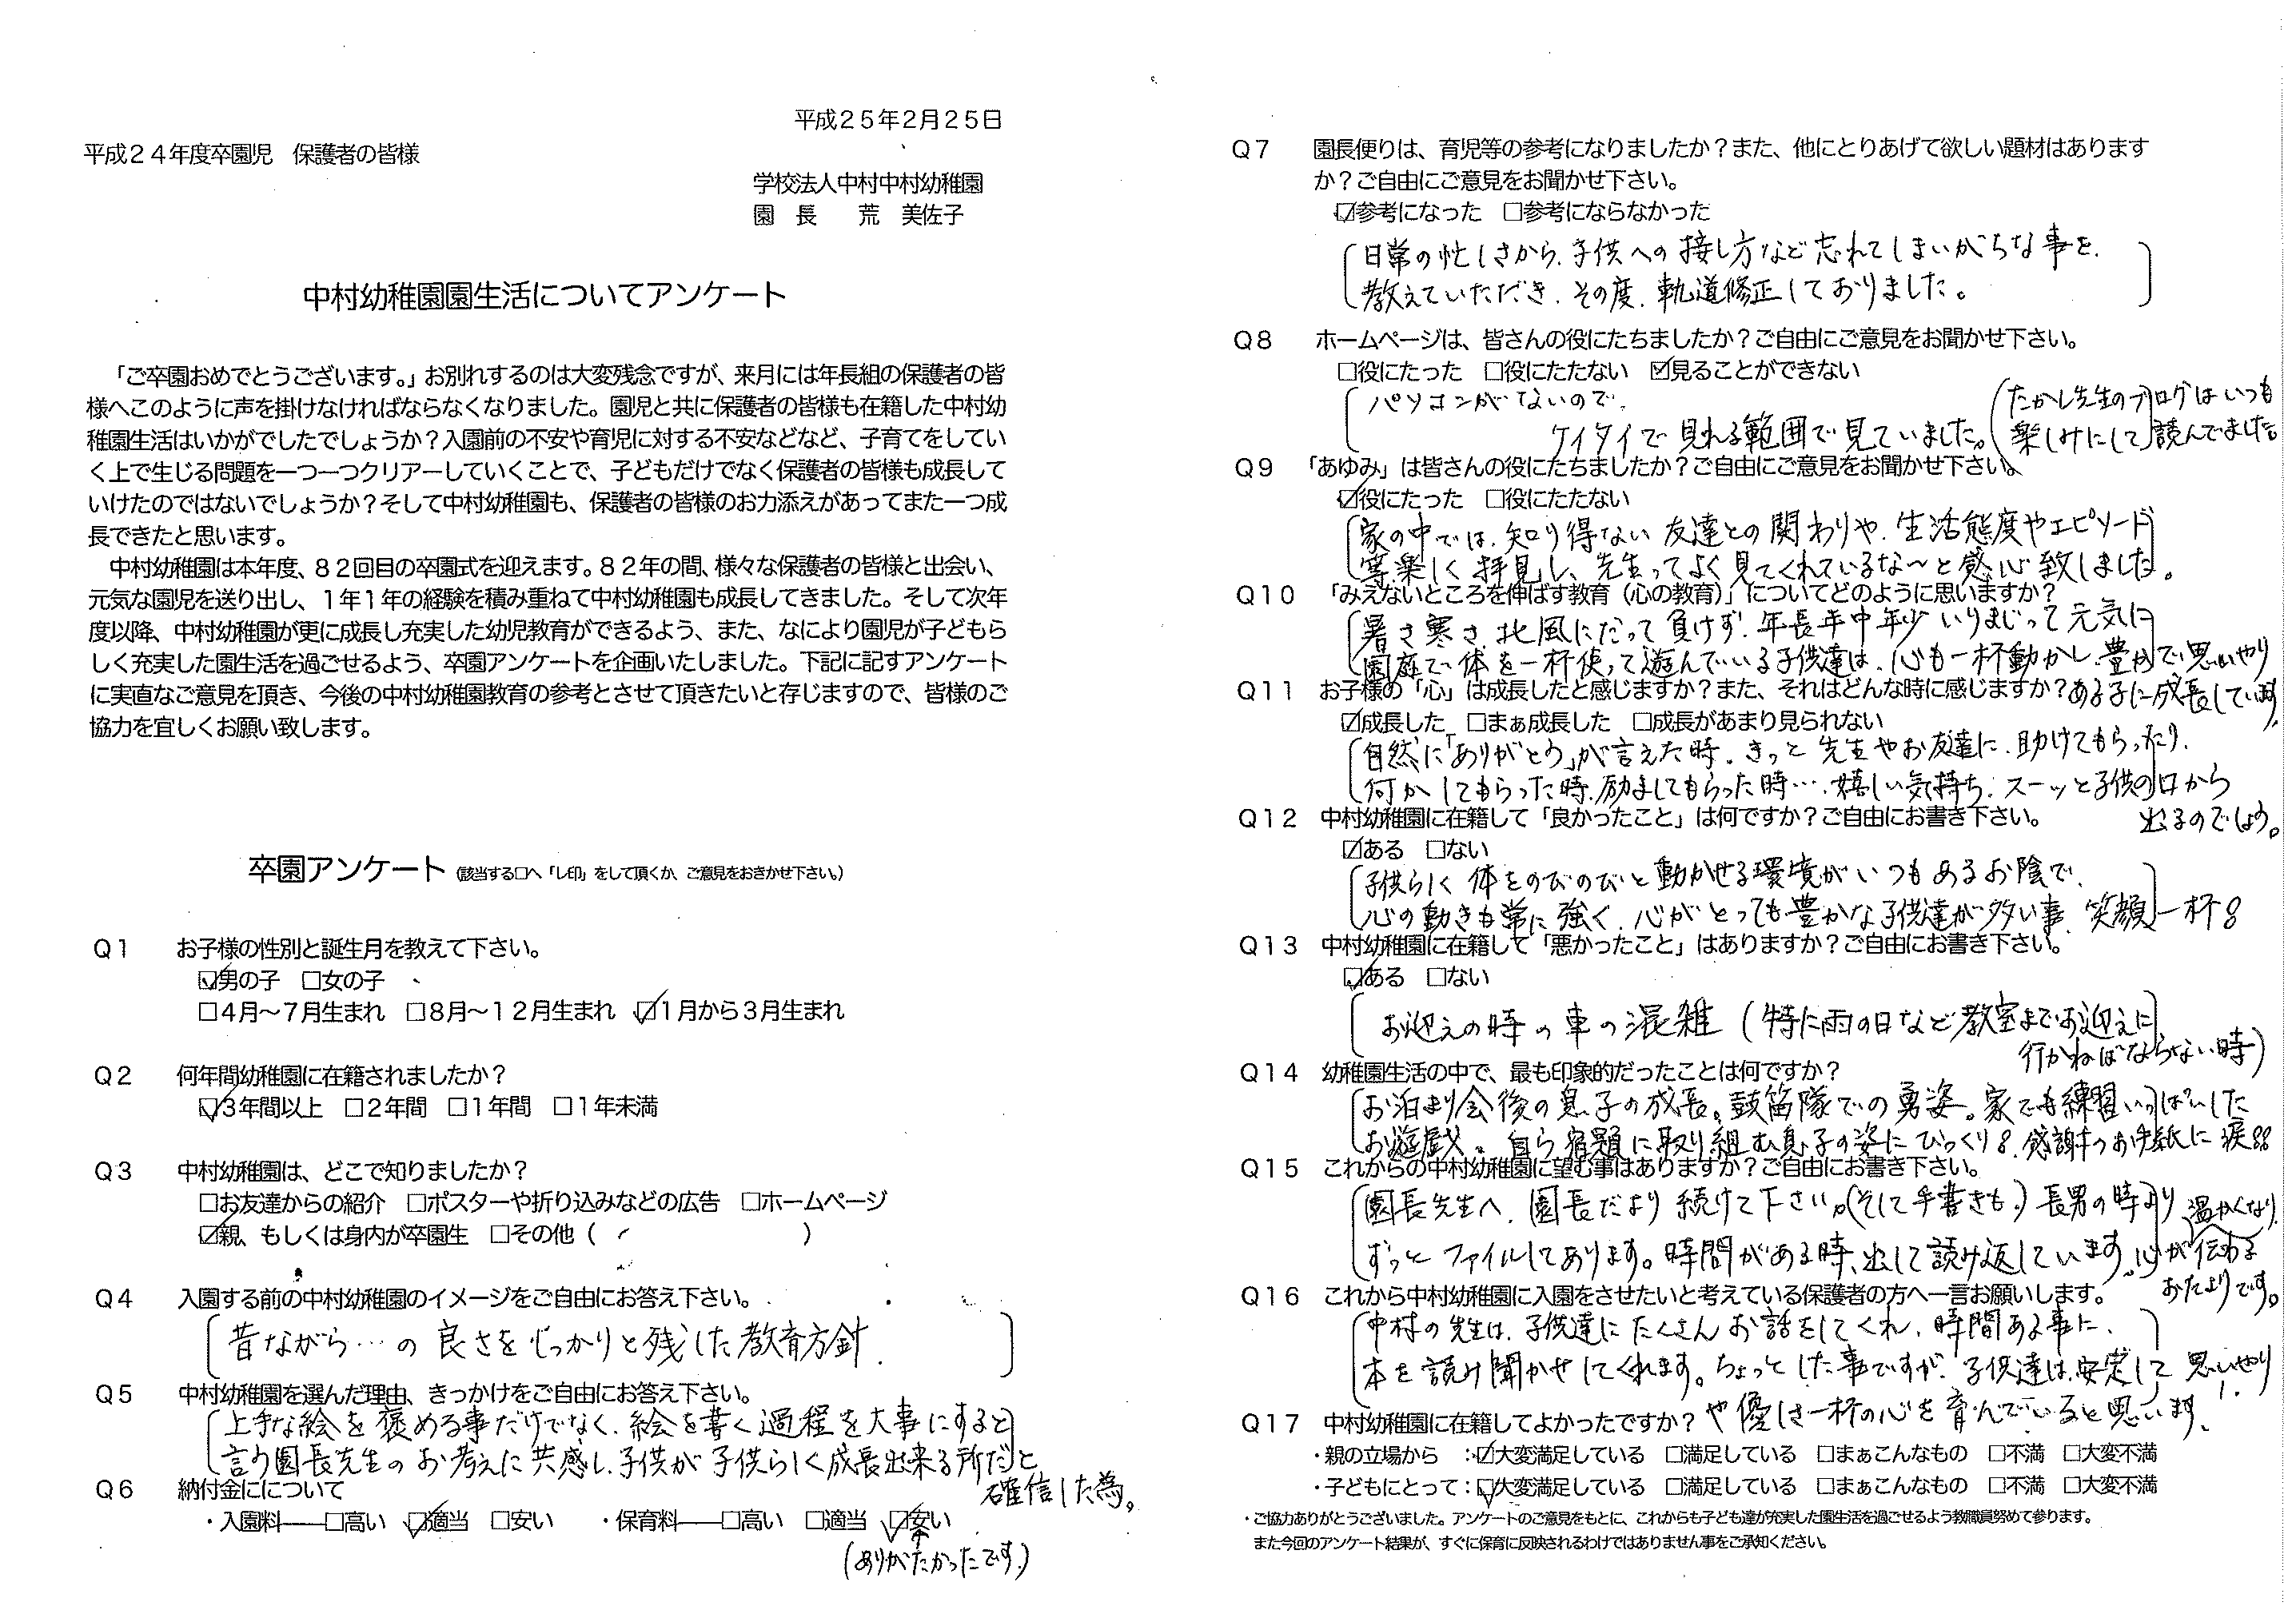 平成25年2月25日
平成24年度卒園児　保護者の皆様
学校法人中村中村幼稚園
園　長　　荒　美佐子
中村幼稚園園生活についてアンケート
「ご卒園おめでとうございます。」お別れするのは大変残念ですが、来月には年長組の保護者の皆
様へこのように声を掛けなければならなくなりました。園児と共に保護者の皆様も在籍した中村幼
稚園生活はいかがでしたでしょうか？入園前の不安や育児に対する不安などなど、子育てをしてい
く上で生じる問題を一つ一つクリアーしていくことで、子どもだけでなく保護者の皆様も成長して
いけたのではないでしょうか？そして中村幼稚園も、保護者の皆様のお力添えがあってまた一つ成
長できたと思います。
中村幼稚園は本年度、82回目の卒園式を迎えます。82年の間、様々な保護者の皆様と出会い、
元気な園児を送り出し、1年1年の経験を積み重ねて中村幼稚園も成長してきました。そして次年
度以降、中村幼稚園が更に成長し充実した幼児教育ができるよう、また、なにより園児が子どもら
しく充実した園生活を過ごせるよう、卒園アンケートを企画いたしました。下記に記すアンケート
に実直なご意見を頂き、今後の中村幼稚園教育の参考とさせて頂きたいと存じますので、皆様のご
協力を宜しくお願い致します。
卒園アンケート（該当する□へ「レ印」をして頂くか、ご意見をおきかせ下さい。）
Q1　お子様の性別と誕生月を教えて下さい。
☑男の子　□女の子
□4月～7月生まれ　□8月～12月生まれ　☑1月から3月生まれ
Q2　何年間幼稚園に在籍されましたか？
☑3年間以上　□2年間　□1年間　□1年未満
Q3　中村幼稚園は、どこで知りましたか？
□お友達からの紹介　□ポスターや折り込みなどの広告　□ホームページ
☑親、もしくは身内が卒園生　□その他（　　　　　）
Q4　入園する前の中村幼稚園のイメージをご自由にお答え下さい。
昔ながら…の良さをしっかりと残した教育方針.
Q5　中村幼稚園を選んだ理由、きっかけをご自由にお答え下さい。
上手な絵を褒める事だけでなく、絵を書く過程を大事にすると
言う園長先生のお考えに共感し、子供が子供らしく成長出来る所だと
確信した為。
Q6　納付金にについて
・入園料――□高い　☑適当　□安い　・保育料――□高い　□適当　☑安い
(ありがたかったです。)
Q7　園長便りは、育児等の参考になりましたか？また、他にとりあげて欲しい題材はあります
か？ご自由にご意見をお聞かせ下さい。
☑参考になった　□参考にならなかった
日常の忙しさから、子供への接し方など忘れてしまいがちな事を、
教えていただき、その度、軌道修正しておりました。
Q8　ホームページは、皆さんの役にたちましたか？ご自由にご意見をお聞かせ下さい。
□役にたった　□役にたたない　☑見ることができない
パソコンがないので、
ケイタイで見れる範囲で見ていました。
(たかし先生のブログはいつも
楽しみにして読んでました。
Q9　「あゆみ」は皆さんの役にたちましたか？ご自由にご意見をお聞かせ下さい。
☑役にたった　□役にたたない
家の中では、知り得ない友達との関わりや、生活態度やエピソード
等楽しく拝見し、先生ってよく見てくれているな～と感心致しました。
Q10　「みえないところを伸ばす教育（心の教育）」についてどのように思いますか？
暑さ寒さ、北風にだって負けず、年長年中年少いりまじって元気に
園庭で体を一杯使って遊んでいる子供達は、心も一杯動かし、豊かで思いやり
ある子に成長しています。
Q11　お子様の「心」は成長したと感じますか？また、それはどんな時に感じますか？
☑成長した　□まぁ成長した　□成長があまり見られない
自然に「ありがとう」が言えた時。きっと先生やお友達に、助けてもらったり、
何かしてもらった時、励ましてもらった時…、嬉しい気持ち、スーッと子供の口から
出るのでしょう。
Q12　中村幼稚園に在籍して「良かったこと」は何ですか？ご自由にお書き下さい。
☑ある　□ない
子供らしく体をのびのびと動かせる環境がいつもあるお陰で、
心の動きも常に強く、心がとっても豊かな子供達が多い事、笑顔一杯!!
Q13　中村幼稚園に在籍して「悪かったこと」はありますか？ご自由にお書き下さい。
☑ある　□ない
お迎えの時の車の混雑（特に雨の日など教室までお迎えに
行かねばならない時）
Q14　幼稚園生活の中で、最も印象的だったことは何ですか？
お泊まり会後の息子の成長。鼓笛隊での勇姿。家でも練習いっぱいした
お遊戯。自ら宿題に取り組む息子の姿にびっくり!!感謝のお手紙に涙!!
Q15　これからの中村幼稚園に望む事はありますか？ご自由にお書き下さい。
園長先生へ、園長だより続けて下さい。(そして手書きも。)長男の時より
ずっとファイルしてあります。時間がある時、出して読み返しています。心が温かくなり、伝わる
おたよりです。
Q16　これから中村幼稚園に入園をさせたいと考えている保護者の方へ一言お願いします。
中村の先生は、子供達にたくさんお話をしてくれ、時間ある事に、
本を読み聞かせしてくれます。ちょっとした事ですが、子供達は、安定して思いやり
や優しさ一杯の心を育んでいると思います!!
Q17　中村幼稚園に在籍してよかったですか？
・親の立場から　：☑大変満足している　□満足している　□まぁこんなもの　□不満　□大変不満
・子どもにとって：☑大変満足している　□満足している　□まぁこんなもの　□不満　□大変不満
・ご協力ありがとうございました。アンケートのご意見をもとに、これからも子ども達が充実した園生活を過ごせるよう教職員努めて参ります。
また今回のアンケート結果が、すぐに保育に反映されるわけではありません事をご承知ください。